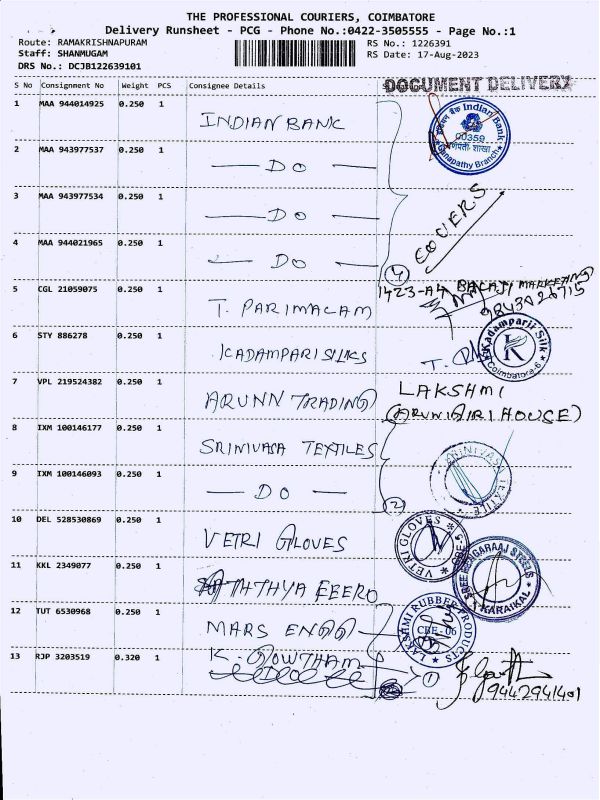 THE PROFESSIONAL COURIERS, COIMBATORE
Delivery Runsheet - PCG - Phone No.:0422-3505555 - Page No.:1
Route: RAMAKRISHNAPURAM
RS No.: 1226391
Staff: SHANMUGAM
RS Date: 17-Aug-2023
DRS No.: DCJB122639101
DOCUMENT DELIVERY
S No Consignment No Weight PCS Consignee Details
1 MAA 944014925 0.250 1 INDIAN BANK
इंडियन बैंक Indian Bank
00359
Ganapathy Branch
2 MAA 943977537 0.250 1 — DO —
3 MAA 943977534 0.250 1 — DO —
COVERS
4 MAA 944021965 0.250 1 — DO —
4
1423-A4 BALAJI MARKETING
5 CGL 21059075 0.250 1 T. PARIMALAM
9843926715
6 STY 886278 0.250 1 KADAMPARI SILKS
Kadamparii Silk
Coimbatore-6
7 VPL 219524382 0.250 1 ARUNN TRADING
LAKSHMI
(ARUNGIRI HOUSE)
8 IXM 100146177 0.250 1 SRINIVASA TEXTILES
9 IXM 100146093 0.250 1 — DO —
2
10 DEL 528530869 0.250 1 VETRI GLOVES
VETRI GLOVES
CBE-6
11 KKL 2349077 0.250 1
KARAIKAL
12 TUT 6530968 0.250 1 MARS ENGG
LAKSHMI RUBBER PRODUCTS
CBE - 06
13 RJP 3203519 0.320 1 K. GOWTHAM
1
9442941401